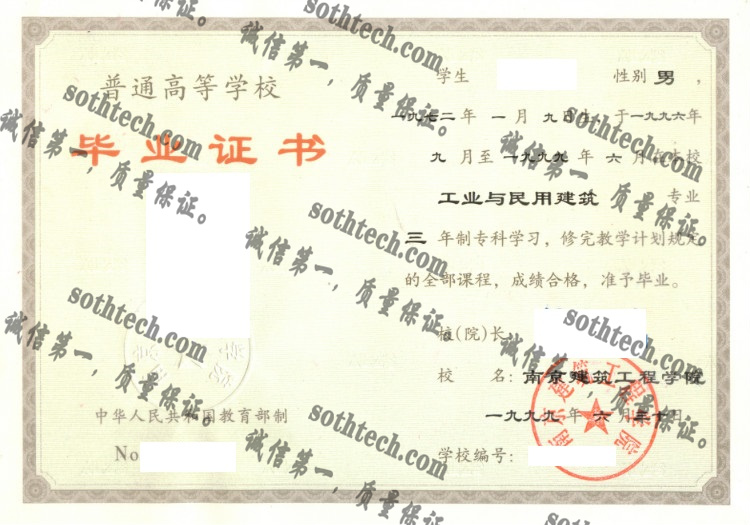 普通高等学校
毕业证书
中华人民共和国教育部制
No
学生 性别 男，
一九七二年 一 月 九日生，于一九九六年
九 月至一九九九 年 六 月在本校
工业与民用建筑 专业
三 年制专科学习，修完教学计划规定
的全部课程，成绩合格，准予毕业。
校(院)长：
校 名：南京建筑工程学院
一九九九 年 六 月三十日
学校编号：
南京建筑工程学院
sothtech.com
诚信第一，质量保证。
sothtech.com
诚信第一，质量保证。
sothtech.com
诚信第一，质量保证。
sothtech.com
诚信第一，质量保证。
sothtech.com
诚信第一，质量保证。
sothtech.com
诚信第一，质量保证。
sothtech.com
诚信第一，质量保证。
sothtech.com
诚信第一，质量保证。